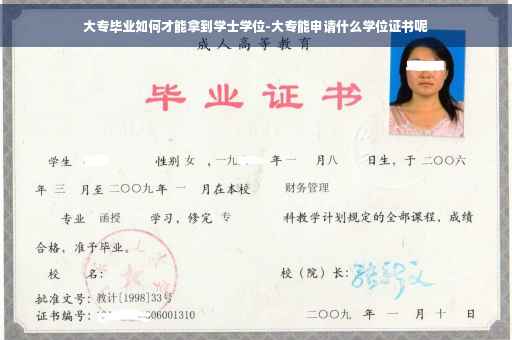 大专毕业如何才能拿到学士学位-大专能申请什么学位证书呢
成人高等教育
毕业证书
学生 性别 女 ,一九 年一 月八 日生，于 二〇〇六
年 三 月至 二〇〇九 年 一 月在本校 财务管理
专业 函授 学习，修完 专 科教学计划规定的全部课程，成绩
合格，准予毕业。
校 名： 校（院）长：
批准文号：教计[1998]33号
证书编号： 06001310 二〇〇九 年 一 月 十 日